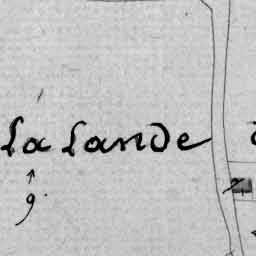 la lande
9.